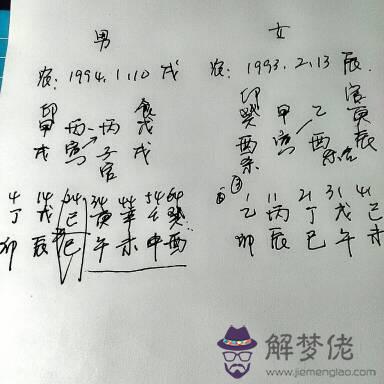 男
农: 1994.1.10 戌
印 食
甲 丙 丙 戊
戌 寅 子 戌
官
4 14 24 34 44 54 64
丁 戊 己 庚 辛 壬 癸
卯 辰 巳 午 未 申 酉
女
农: 1993.2.13 辰
印 官
癸 甲 乙 庚
酉 寅 酉 辰
杀
1 11 21 31 41
乙 丙 丁 戊 己
卯 辰 巳 午 未
解梦佬
www.jiemenglao.com